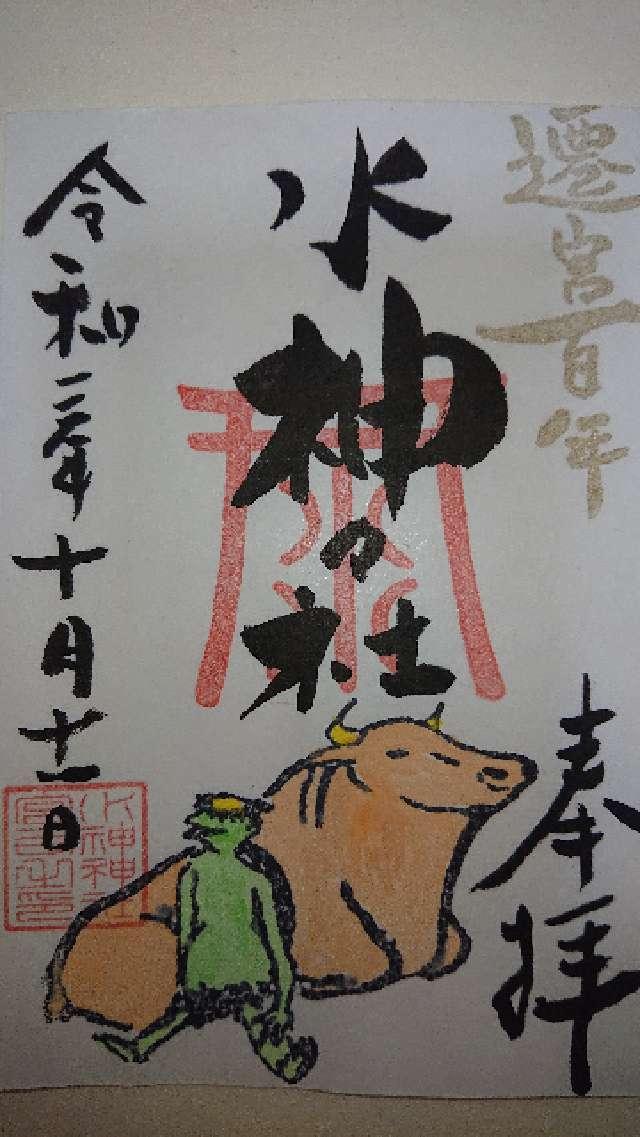 遷宮百年
奉拝
水神の社
令和三年十月十一日
水神神社